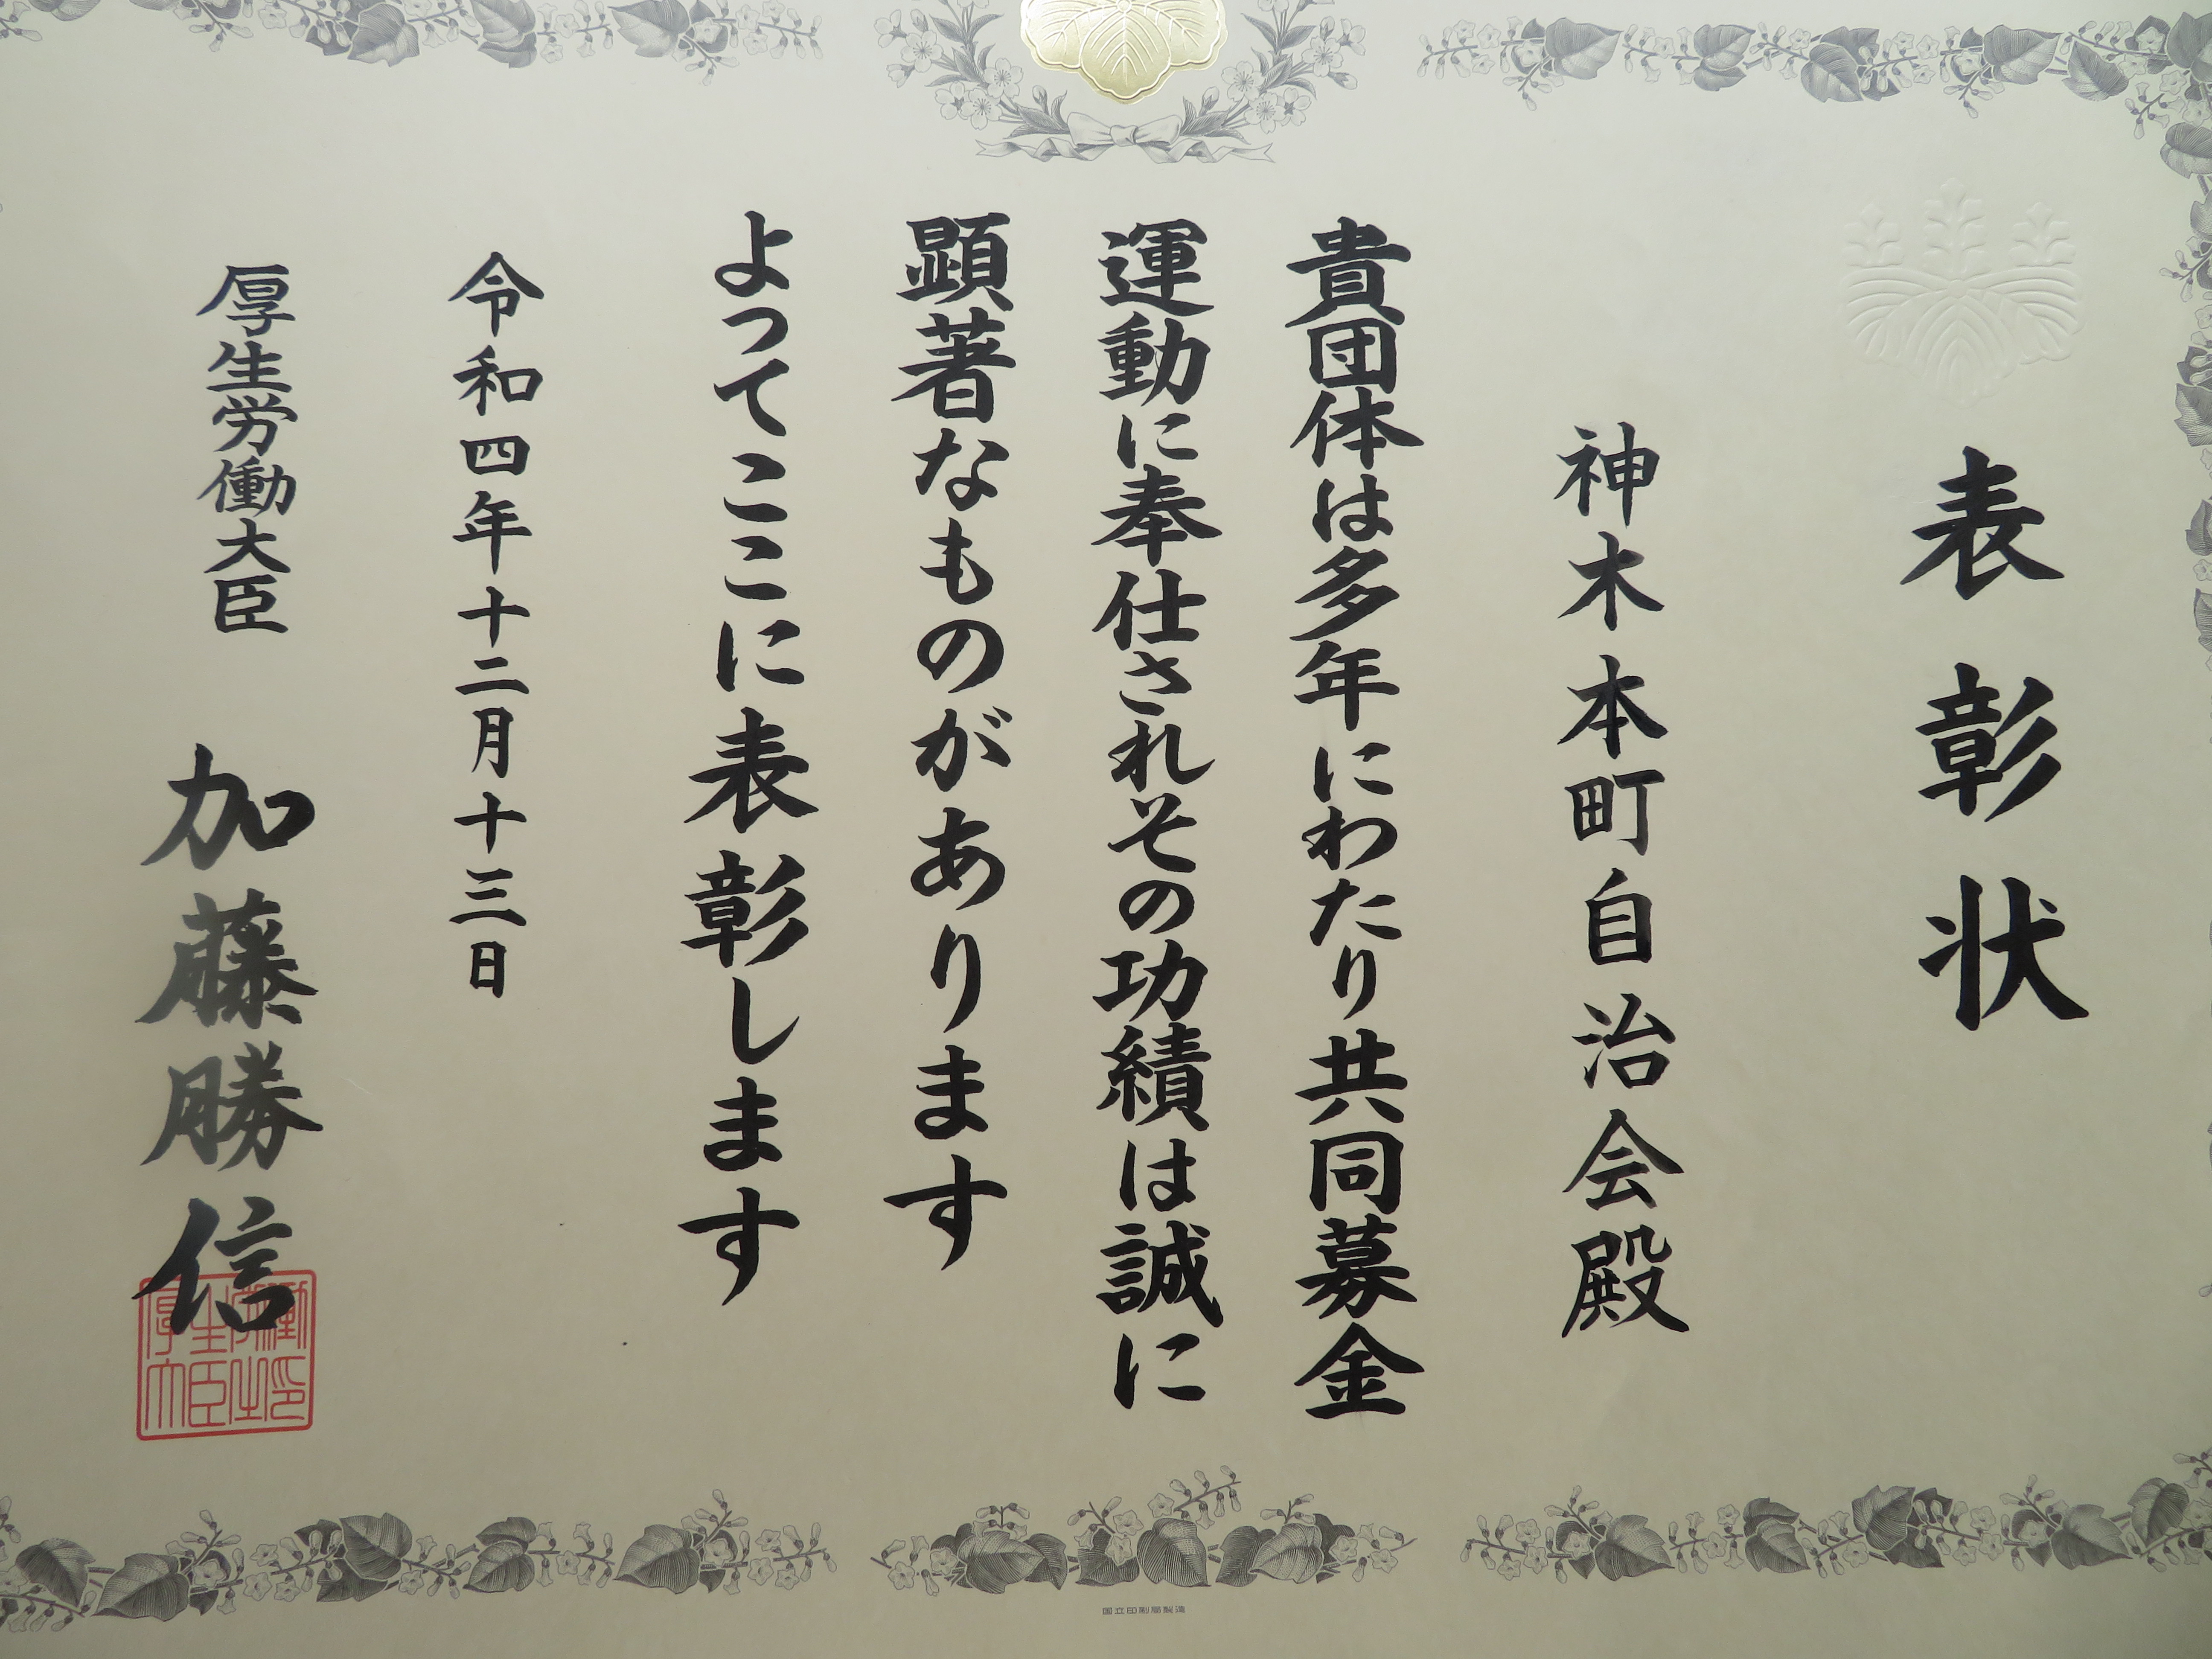 表彰状
神木本町自治会殿
貴団体は多年にわたり共同募金
運動に奉仕されその功績は誠に
顕著なものがあります
よってここに表彰します
令和四年十二月十三日
厚生労働大臣 加藤勝信
国立印刷局製造